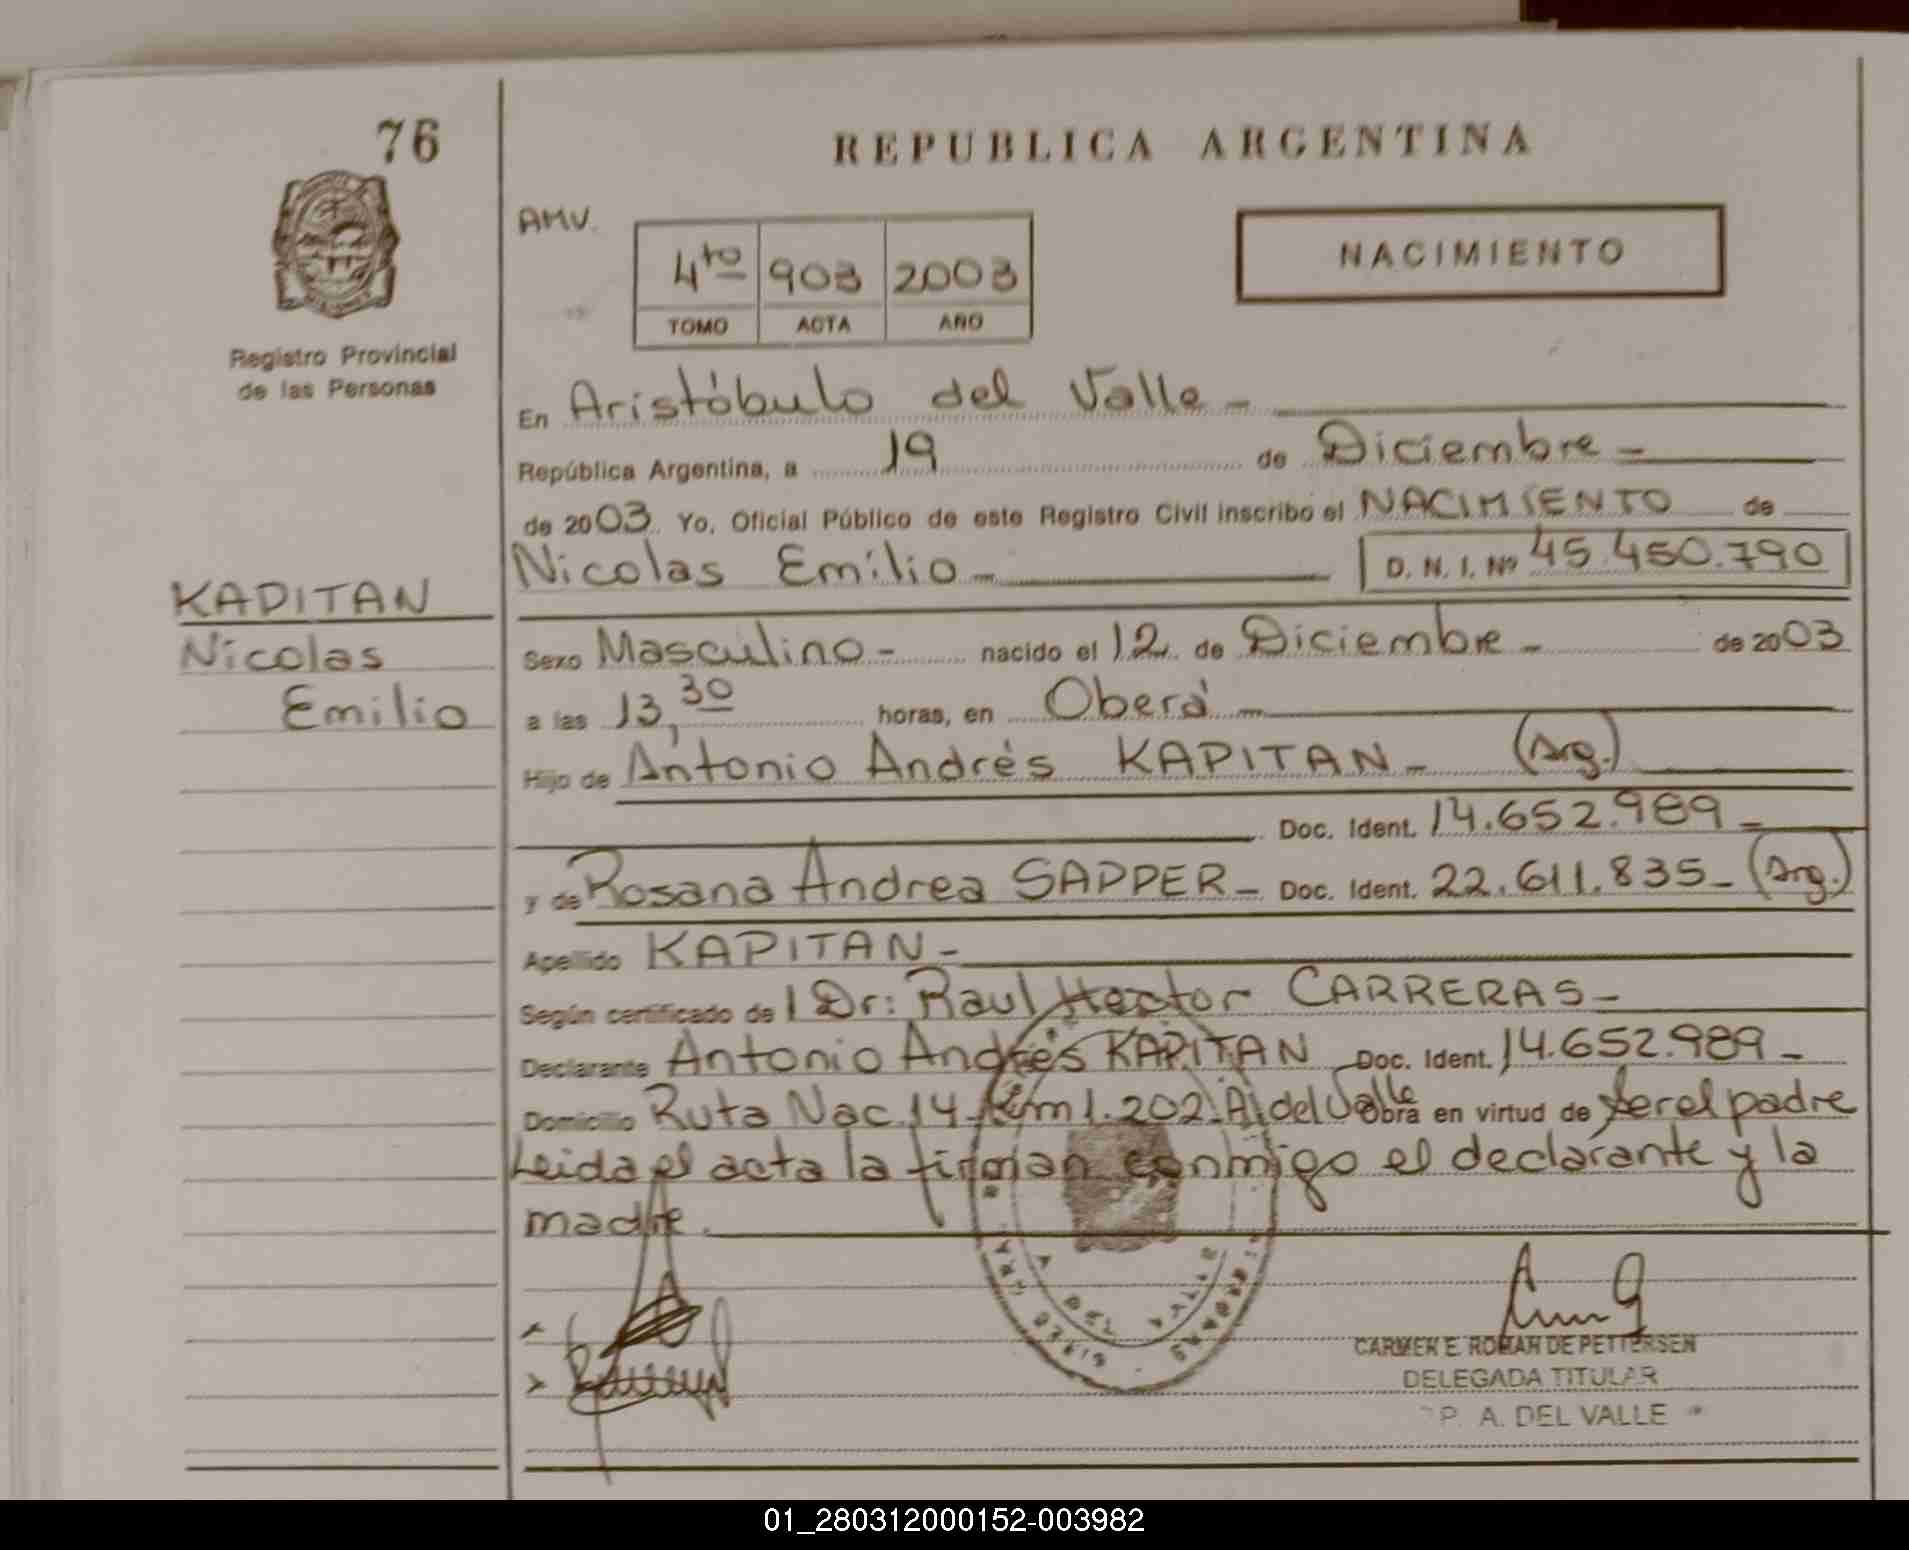 76
REPUBLICA ARGENTINA
AMV.
4to 903 2003
TOMO ACTA AÑO
NACIMIENTO
Registro Provincial
de las Personas
En Aristóbulo del Valle -
República Argentina, a 19 de Diciembre -
de 2003 Yo, Oficial Público de este Registro Civil inscribo el NACIMIENTO de
Nicolas Emilio - D. N. I. Nº 45.450.790
KAPITAN
Nicolas
Emilio
Sexo Masculino - nacido el 12 de Diciembre - de 2003
a las 13,30 horas, en Oberá -
Hijo de Antonio Andrés KAPITAN - (Arg.)
Doc. Ident. 14.652.989 -
y de Rosana Andrea SAPPER - Doc. Ident. 22.611.835 - (Arg.)
Apellido KAPITAN -
Según certificado de l Dr: Raul Hector CARRERAS -
Declarante Antonio Andrés KAPITAN Doc. Ident. 14.652.989 -
Domicilio Ruta Nac. 14 - Km 1.202. A. del Valle Obra en virtud de Ser el padre
Leida el acta la firman conmigo el declarante y la
madre.
A DEL VALLE
CARMEN E. ROMAN DE PETTERSEN
DELEGADA TITULAR
P. A. DEL VALLE
01_280312000152-003982